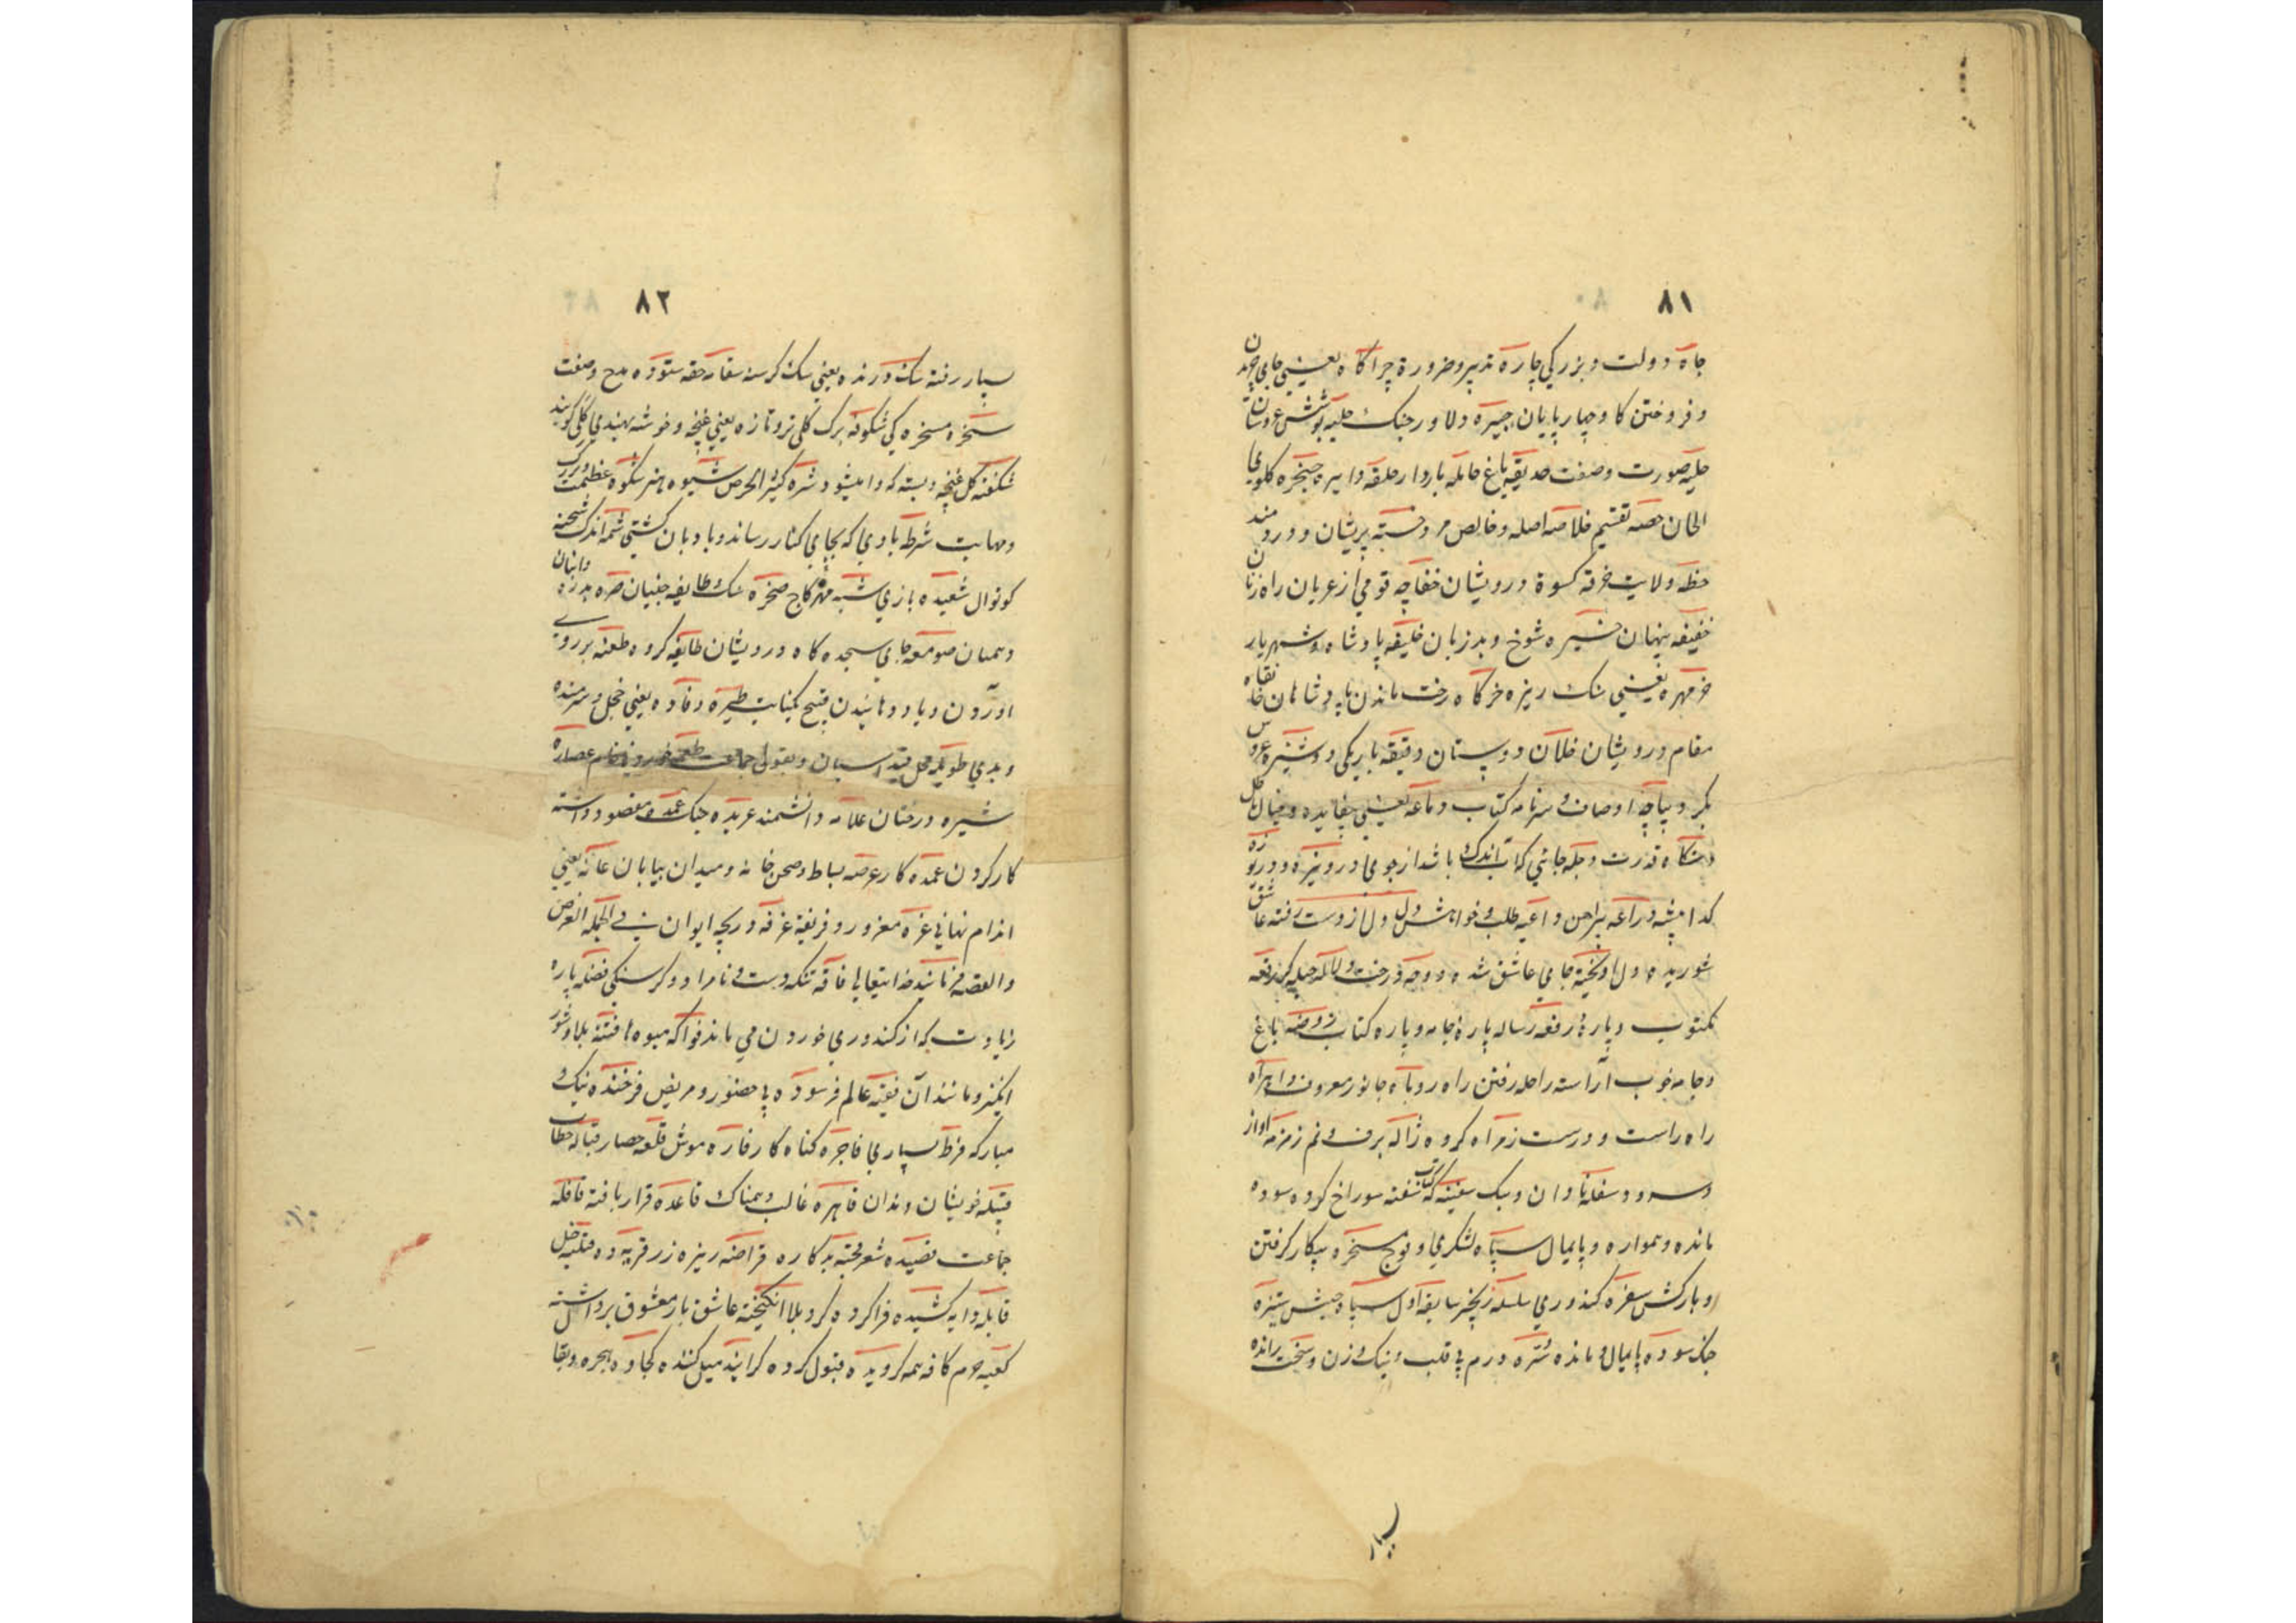 ۸۱
جاه دولت و بزرکی چاره تدبیر و ضرورة چراکاه یعنیی جای چریدن
و فروختن کاو چهارپایان چیره دلاور جنک حلیه پوشش عروسان
حلیه صورت وصفت حدیقه باغ حامله باردار حلقه دایره حنجره کلوی
الحان حصه تقسیم خلاصه اصله و خالص مرد خسته پریشان و دردمند
خطه ولایت خرقه کسوة درویشان خفاچه قومی از عربان راه زنان
خفیفه پنهان خیره شوخ و بدزبان خلیفه پادشاه و شهریار
خرمهره یعنیی سنک ریزه خرکاه رخت ماندن پادشاهان خانقاه
مقام درویشان خلان دوستان دقیقه باریکی دوشیزه عروس
بکر دیباچه اوصاف و سرنامه کتاب
دستکاه قدرت دجله جائی که آب اندک باشد از جوی دریوزه
کدا پیشه دراعه پیراهن داعیه طلب و خواهش دل دل از دست رفته عاشق
شوریده دل آویخته جای عاشق شده دوحه درخت دلاله حیله کر رقعه
مکتوب و پارهٔ رقعه رساله پارهٔ جامه و پاره کتاب روضه باغ
و جامه خوب آراسته راحله رفتن راه روباه جانور معروف
راه راست و درست زمراه کروه ژاله برف و نم زمزمه آواز
و سرود سفله نادان و سبک سفینه کتاب سفته سوراخ کرده سوده
مانده و همواره و پایمال سپاه لشکری و فوج سخره بیکار کرفتن
و بارکش سفره کندوری سلسله زنجیر سابقه اول سپاه جیش ستیزه
جنک سوده پایمال و مانده سره درم بی قلب و نیک وزن و سخت رانده
سپار
۸۲
سپار رفته سک درنده یعنی سک کرسنه سفار حقه ستوده مدح وصفت
سخره مسخره کی شکوفه برک کلی تر و تازه یعنی غنچه و خوشه بهندی کلی کویند
شکفته کل غنچه و بسته که وا میشود شره کثیر الحرص شیوه هنر شکوه عظمت و بزرکی
و مهابت شرطه بادی که بجای کنار رساند و بادبان کشتی شمه اندک شحنه
کوتوال شعبده بازی شبه مهره کاج صخره سنک طایفه جنیان صره بدره
و همیان صومعه جای سجده کاه درویشان طایفه کروه طعنه بر روی
آوردن و یاد دهانیدن قبیح بکنایت طیره دفاده یعنی خجل و شرمنده
و بدی طویله محل قید اسپان و بقول جماعت طعمه عصاره
شیره درختان علامه دانشمند عربده جنک عمده مقصود داشته
کار کردن عمده کار عرصه بساط و صحن خانه و میدان بیابان عانه یعنی
اندام نهانی غره مغرور و فریفته غرفه دریچه ایوان فی الجمله الغرض
و القصه فرمانیده خدایتعالی فاقه تنکدست و نامراد و کرسنکی فضله پاره
زیادت که از کندوری خوردن می ماند فواکه میوه ها فتنه بلا و شور
انکیز و مانند آن فقیه عالم فرسوده بی حضور و مریض فرخنده نیک و
مبارکه فرط بسیاری فاجره کناه کار فاره موش قلعه حصار قباله خطاب
قبیله خویشان و ندان قاهره غالب و همناک قاعده قرار یافته قافله
جماعت قصیده شعر قحبه بدکاره قراضه ریزه زر قریه ده
قابله دایه کشیده فرا کرده کرد بلا انکیخته عاشق بار معشوق برداشته
کعبه حرم کافه همه کرویده قبول کرده کراینده میل کننده کجاوه هجره و بقا